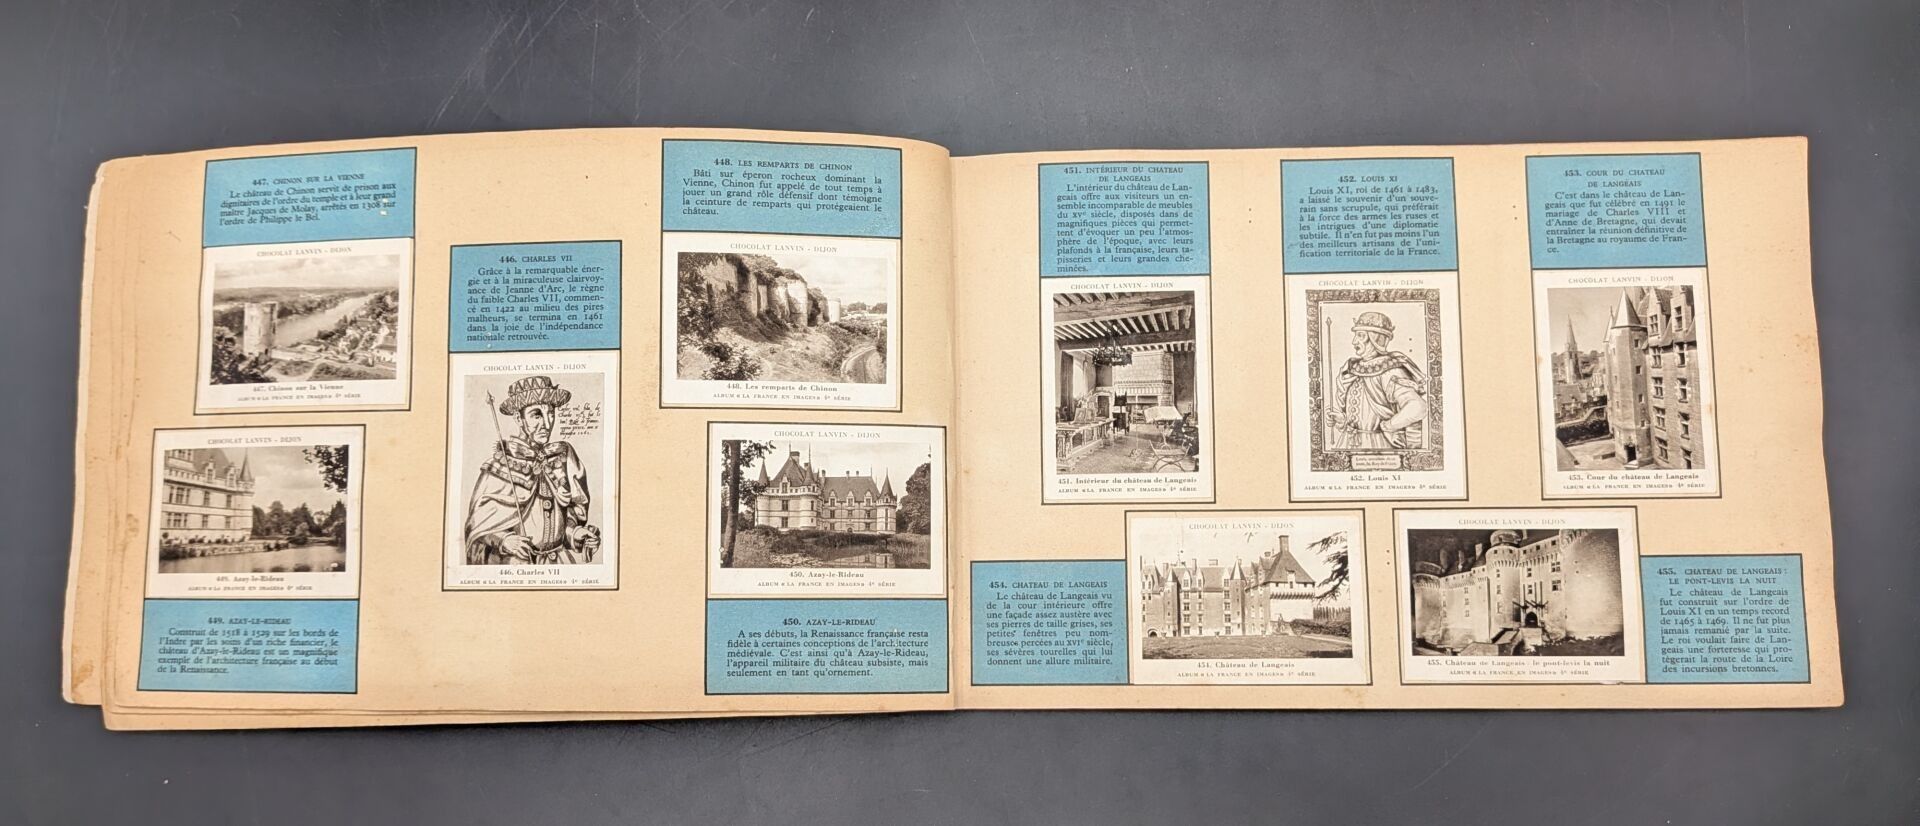 447. CHINON SUR LA VIENNE
Le château de Chinon servit de prison aux
dignitaires de l'ordre du temple et à leur grand
maître Jacques de Molay, arrêtés en 1308 sur
l'ordre de Philippe le Bel.
CHOCOLAT LANVIN - DIJON
447. Chinon sur la Vienne
ALBUM « LA FRANCE EN IMAGES » 4e SÉRIE
CHOCOLAT LANVIN - DIJON
449. Azay-le-Rideau
ALBUM « LA FRANCE EN IMAGES » 4e SÉRIE
449. AZAY-LE-RIDEAU
Construit de 1518 à 1529 sur les bords de
l'Indre par les soins d'un riche financier, le
château d'Azay-le-Rideau est un magnifique
exemple de l'architecture française au début
de la Renaissance.
446. CHARLES VII
Grâce à la remarquable éner-
gie et à la miraculeuse clairvoy-
ance de Jeanne d'Arc, le règne
du faible Charles VII, commen-
cé en 1422 au milieu des pires
malheurs, se termina en 1461
dans la joie de l'indépendance
nationale retrouvée.
CHOCOLAT LANVIN - DIJON
446. Charles VII
ALBUM « LA FRANCE EN IMAGES » 4e SÉRIE
448. LES REMPARTS DE CHINON
Bâti sur éperon rocheux dominant la
Vienne, Chinon fut appelé de tout temps à
jouer un grand rôle défensif dont témoigne
la ceinture de remparts qui protégeaient le
château.
CHOCOLAT LANVIN - DIJON
448. Les remparts de Chinon
ALBUM « LA FRANCE EN IMAGES » 4e SÉRIE
CHOCOLAT LANVIN - DIJON
450. Azay-le-Rideau
ALBUM « LA FRANCE EN IMAGES » 4e SÉRIE
450. AZAY-LE-RIDEAU
A ses débuts, la Renaissance française resta
fidèle à certaines conceptions de l'architecture
médiévale. C'est ainsi qu'à Azay-le-Rideau,
l'appareil militaire du château subsiste, mais
seulement en tant qu'ornement.
451. INTÉRIEUR DU CHATEAU
DE LANGEAIS
L'intérieur du château de Lan-
geais offre aux visiteurs un en-
semble incomparable de meubles
du XVe siècle, disposés dans de
magnifiques pièces qui permet-
tent d'évoquer un peu l'atmos-
phère de l'époque, avec leurs
plafonds à la française, leurs ta-
pisseries et leurs grandes che-
minées.
CHOCOLAT LANVIN - DIJON
451. Intérieur du château de Langeais
ALBUM « LA FRANCE EN IMAGES » 4e SÉRIE
452. LOUIS XI
Louis XI, roi de 1461 à 1483,
a laissé le souvenir d'un souve-
rain sans scrupule, qui préférait
à la force des armes les ruses et
les intrigues d'une diplomatie
subtile. Il n'en fut pas moins l'un
des meilleurs artisans de l'uni-
fication territoriale de la France.
CHOCOLAT LANVIN - DIJON
452. Louis XI
ALBUM « LA FRANCE EN IMAGES » 4e SÉRIE
453. COUR DU CHATEAU
DE LANGEAIS
C'est dans le château de Lan-
geais que fut célébré en 1491 le
mariage de Charles VIII et
d'Anne de Bretagne, qui devait
entraîner la réunion définitive de
la Bretagne au royaume de Fran-
ce.
CHOCOLAT LANVIN - DIJON
453. Cour du château de Langeais
ALBUM « LA FRANCE EN IMAGES » 4e SÉRIE
454. CHATEAU DE LANGEAIS
Le château de Langeais vu
de la cour intérieure offre
une façade assez austère avec
ses pierres de taille grises, ses
petites fenêtres peu nom-
breuses percées au XVIe siècle,
ses sévères tourelles qui lui
donnent une allure militaire.
CHOCOLAT LANVIN - DIJON
454. Château de Langeais
ALBUM « LA FRANCE EN IMAGES » 4e SÉRIE
CHOCOLAT LANVIN - DIJON
455. Château de Langeais : le pont-levis la nuit
ALBUM « LA FRANCE EN IMAGES » 4e SÉRIE
455. CHATEAU DE LANGEAIS :
LE PONT-LEVIS LA NUIT
Le château de Langeais
fut construit sur l'ordre de
Louis XI en un temps record
de 1465 à 1469. Il ne fut plus
jamais remanié par la suite.
Le roi voulait faire de Lan-
geais une forteresse qui pro-
tégerait la route de la Loire
des incursions bretonnes.